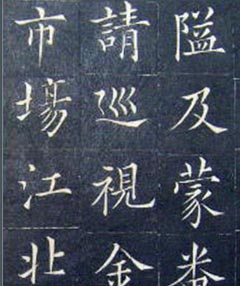 隘及蒙畨
請巡視金
市場江北